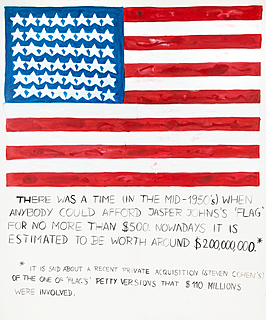 THERE WAS A TIME (IN THE MID-1950's) WHEN
ANYBODY COULD AFFORD JASPER JOHNS'S 'FLAG'
FOR NO MORE THAN $500. NOWADAYS IT IS
ESTIMATED TO BE WORTH AROUND $200,000,000.*
* IT IS SAID ABOUT A RECENT PRIVATE ACQUISITION (STEVEN COHEN'S)
OF THE ONE OF 'FLAG'S' PETTY VERSIONS THAT $110 MILLIONS
WERE INVOLVED.